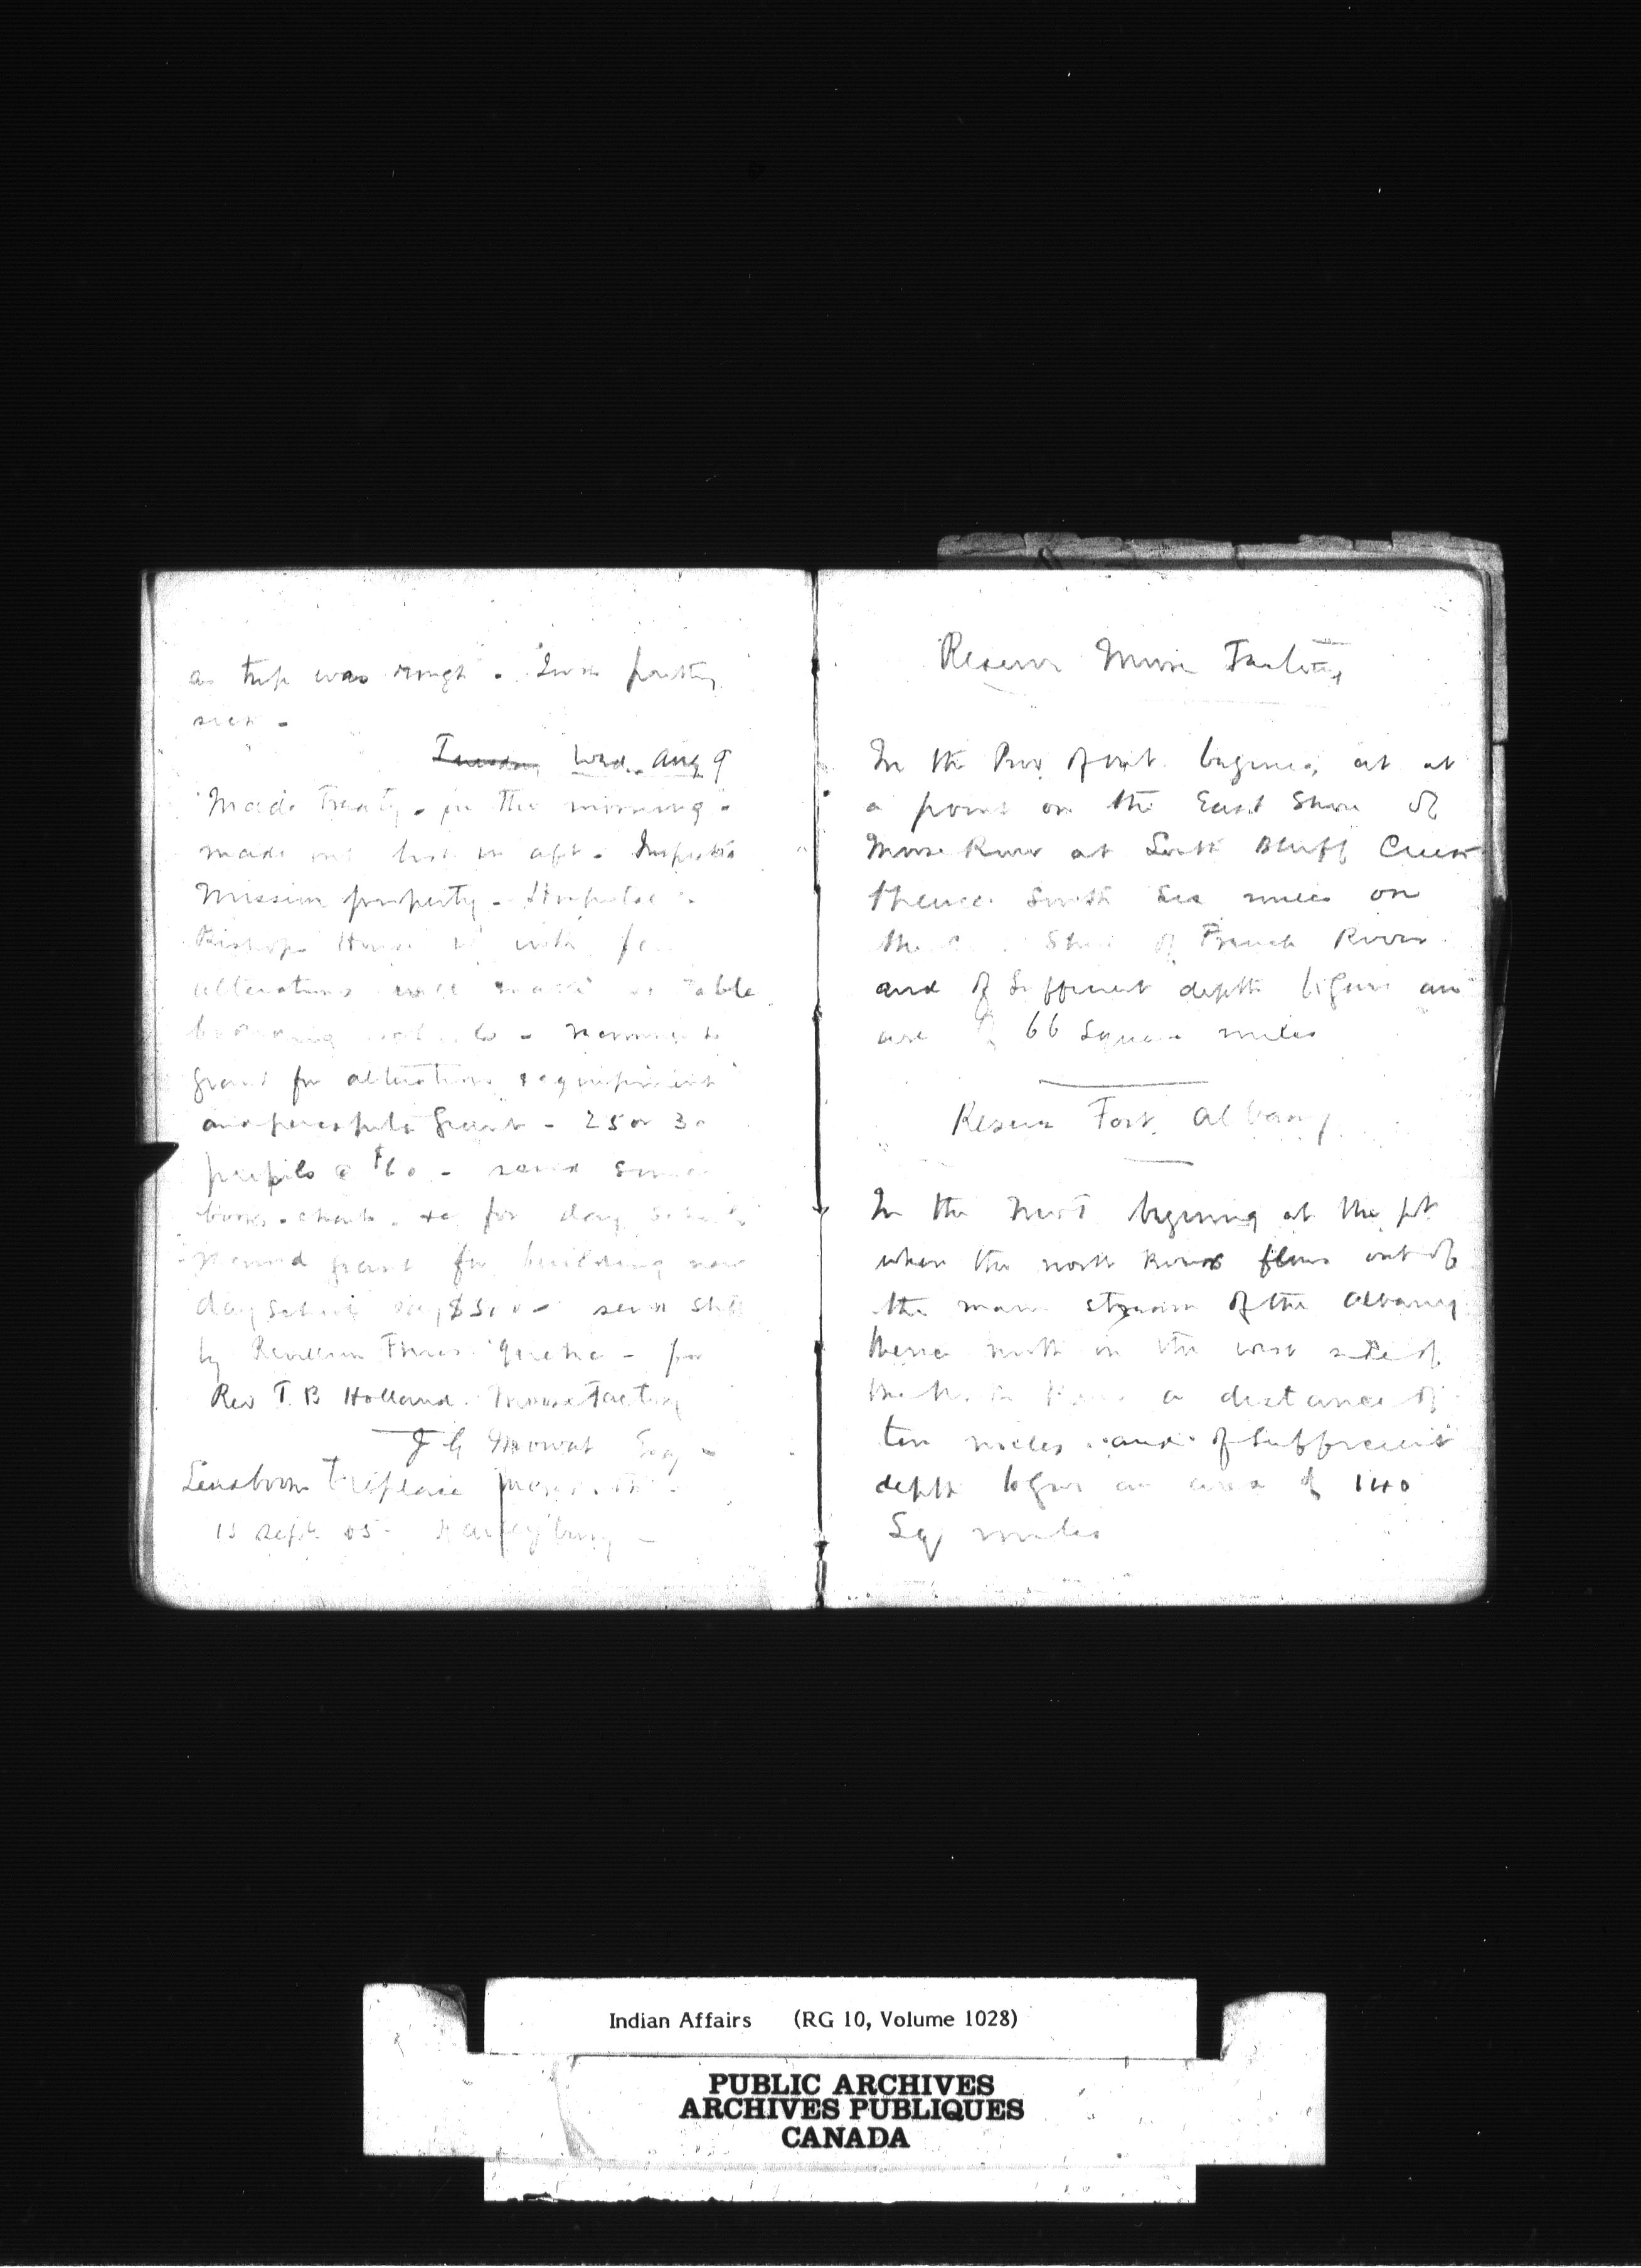 as trip was rough. Was pretty
sick -
Tuesday Wed. Aug 9
Made treaty - in the morning -
made out list in aft. Inspected
Mission property - Hospital -
Bishops House with few
alterations will make suitable
boarding school -
grant for alterations & equipment
and per capita grant - 25 or 30
pupils @ $60 - send some
books - charts &c for day school
grant for building new
day school say $500 - send stuff
by Revillon Freres Quebec - for
Rev T. B Holland. Moose Factory
J G Mowat Esq -
15 Sept 05 - Haileybury -
Reserve Moose Factory
In the Prov of Ont. beginning at at
a point on the East Shore of
Moose River at South Bluff Creek
thence South six miles on
the Shore of French River
and of Sufficient depth to give an
area of 66 Square miles
Reserve Fort Albany
In the NWT beginning at the pt
where the north River flows out of
the main stream of the Albany
thence north on the west side of
the North River a distance of
ten miles and of Sufficient
depth to give an area of 140
Sq miles
Indian Affairs (RG 10, Volume 1028)
PUBLIC ARCHIVES
ARCHIVES PUBLIQUES
CANADA